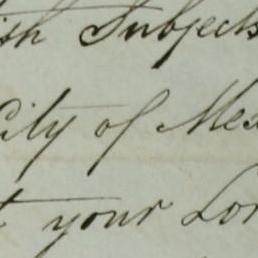 ish Subjects
City of Mex
t your Lor